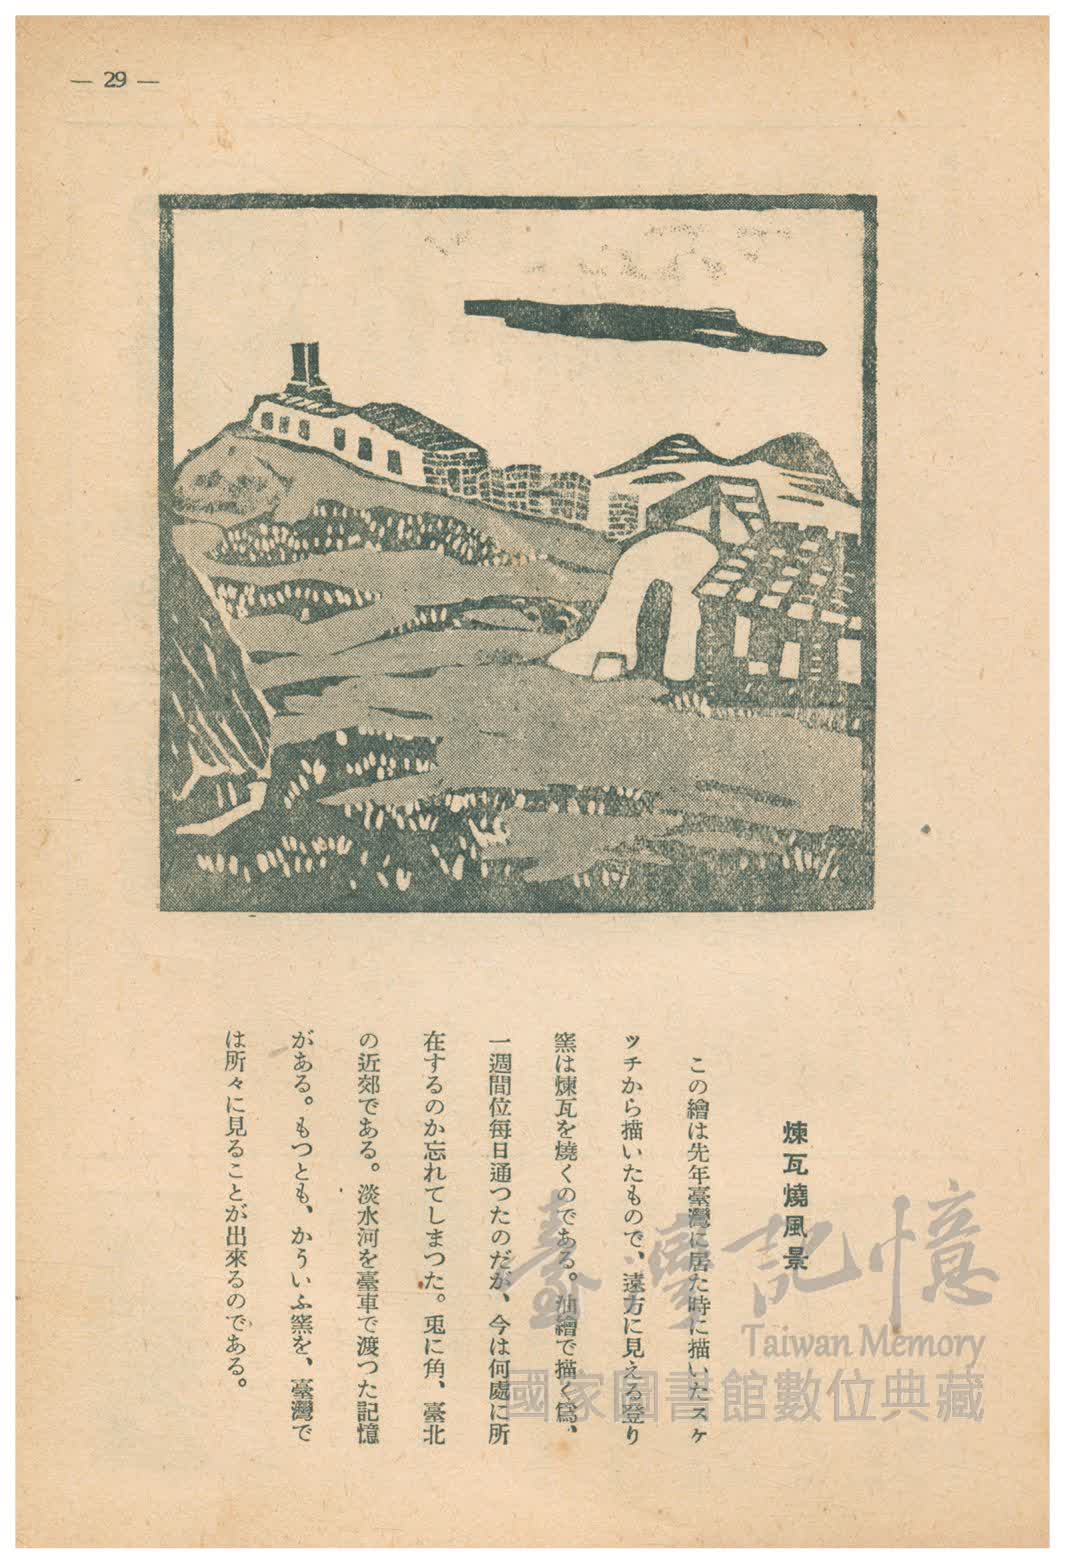 — 29 —
煉瓦燒風景
この繪は先年臺灣に居た時に描いたスケ
ツチから描いたもので、遠方に見える登り
窯は煉瓦を燒くのである。油繪で描く爲、
一週間位每日通つたのだが、今は何處に所
在するのか忘れてしまつた。兎に角、臺北
の近郊である。淡水河を臺車で渡つた記憶
がある。もつとも、かういふ窯を、臺灣で
は所々に見ることが出來るのである。
臺灣記憶
Taiwan Memory
國家圖書館數位典藏